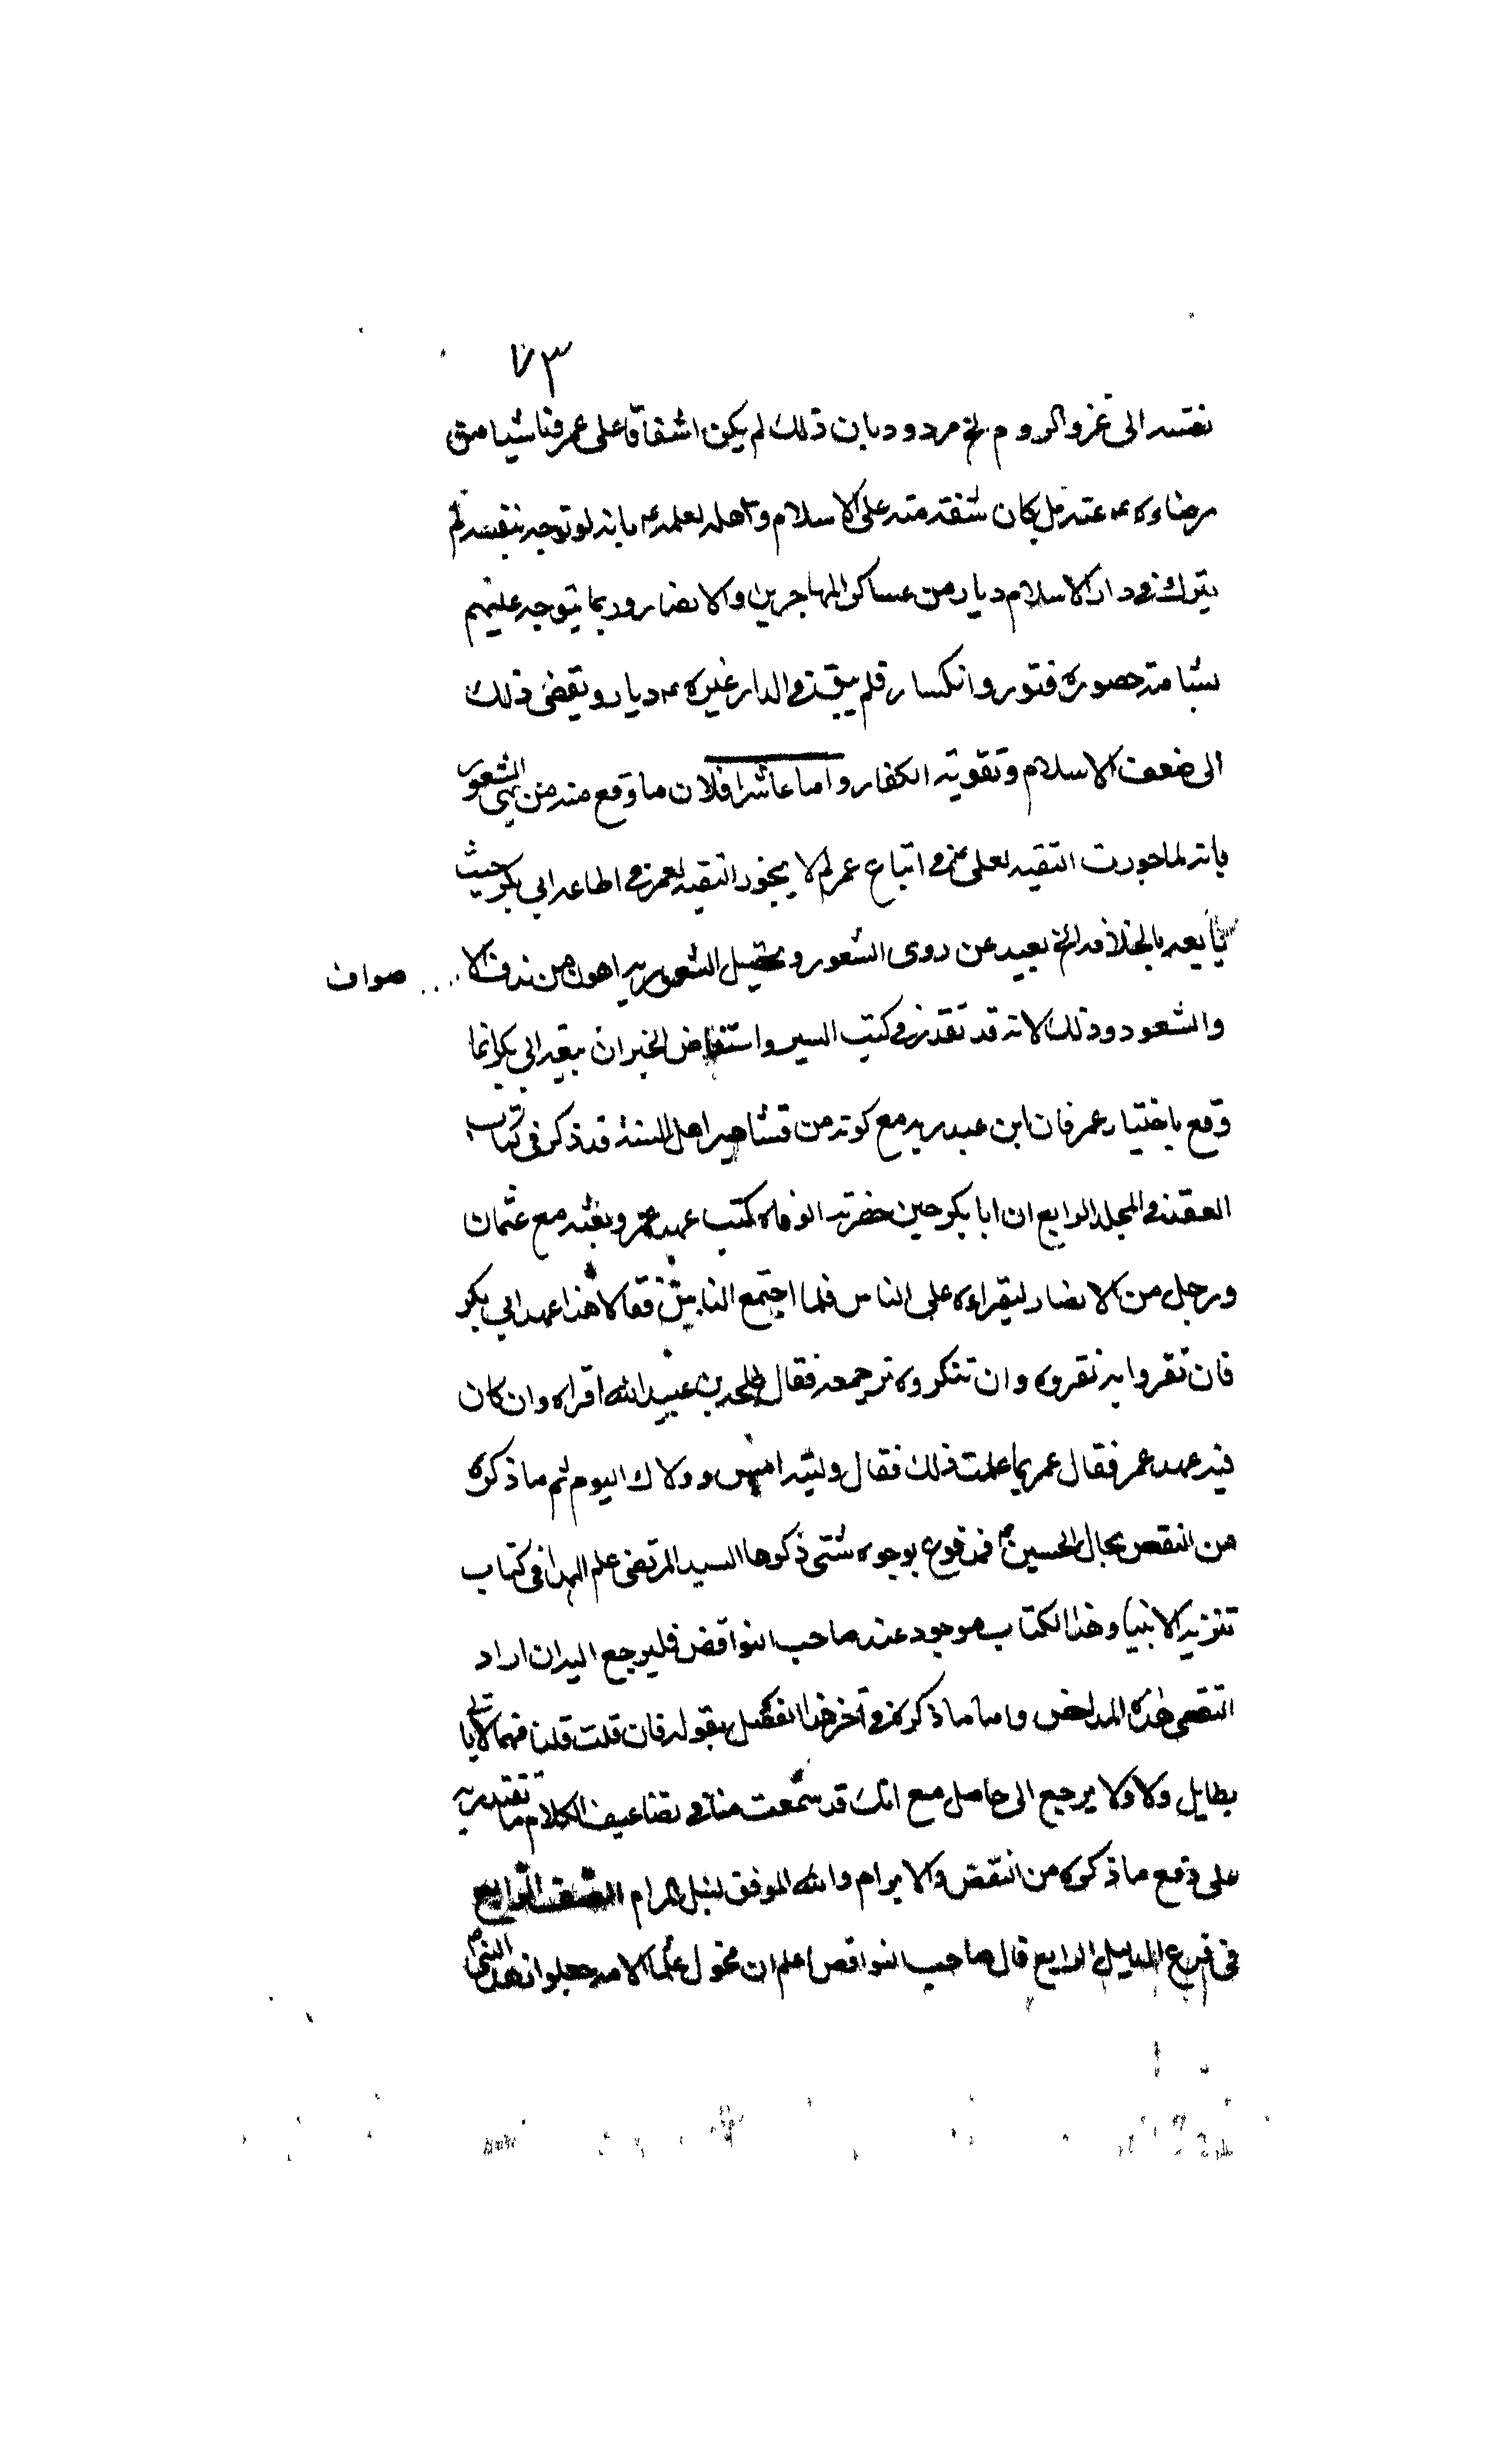 ٧٣
نفسه الى غزو الروم الخ مردود بان ذلك لم يكن اشفاقا على عمر ناشيا من
رضاءه ع عنه بل كان شفقه منه على الاسلام و اهله لعلمه ع بانه لو توجه بنفسه لم
يترك في دار الاسلام ديار من عساكر المهاجرين والانصار وربما يتوجه عليهم
بشامة حضوره فتور وانكسار فلم يبق في الدار غيره ع ديار ويفضى ذلك
الى ضعف الاسلام وتقويه الكفار واما عاشرا فلان ما وقع منه من نهى الشعور
بانه لما جوزت التقيه لعلى ع في اتباع عمر لم لا يجوز التقيه لعمر في اطاعه ابي بكر حيث
بايعه بالخلافه الخ بعيد عن روى الشعور و تحصيل الشعور به اهون من ندف الا صواف
والشعور وذلك لانه قد تقدم في كتب السير واستفاض الخبر ان بيعه ابي بكر انما
وقع باختيار عمر فان ابن عبد ربه مع كونه من مشاهير اهل السنة قد ذكر فى كتاب
العقد في المجلد الرابع ان ابا بكر حين حضرته الوفاه كتب عهد عمر وبعثه مع عثمان
ورجل من الانصار ليقراءه على الناس فلما اجتمع الناس فقالا هذا عهد ابي بكر
فان تقروا به نقروه وان تنكروه نرجعه فقال طلحه بن عبيد الله اقراه وان كان
فيه عهد عمر فقال عمر بما علمت ذلك فقال وليته امس وولاك اليوم ثم ما ذكره
من النقض بحال الحسين ع فمدفوع بوجوه شتى ذكرها السيد المرتضى علم الهدا فى كتاب
تنزيه الانبيا وهذا الكتاب موجود عند صاحب النواقض فليرجع اليه ان اراد
التقصى هذه المداحض واما ما ذكره في آخر هذا الفصل بقوله فان قلت قلنا فمما لا ياتي
بطايل ولا ولا يرجع الى حاصل مع انك قد سمعت منا في تضاعيف الكلام ما تقتدر به
على دفع ما ذكره من النقض والابرام والله الموفق لنيل المرام
فى فروع الدليل الرابع قال صاحب النواقض اعلم ان فحول علما الامه جعلوا النبي